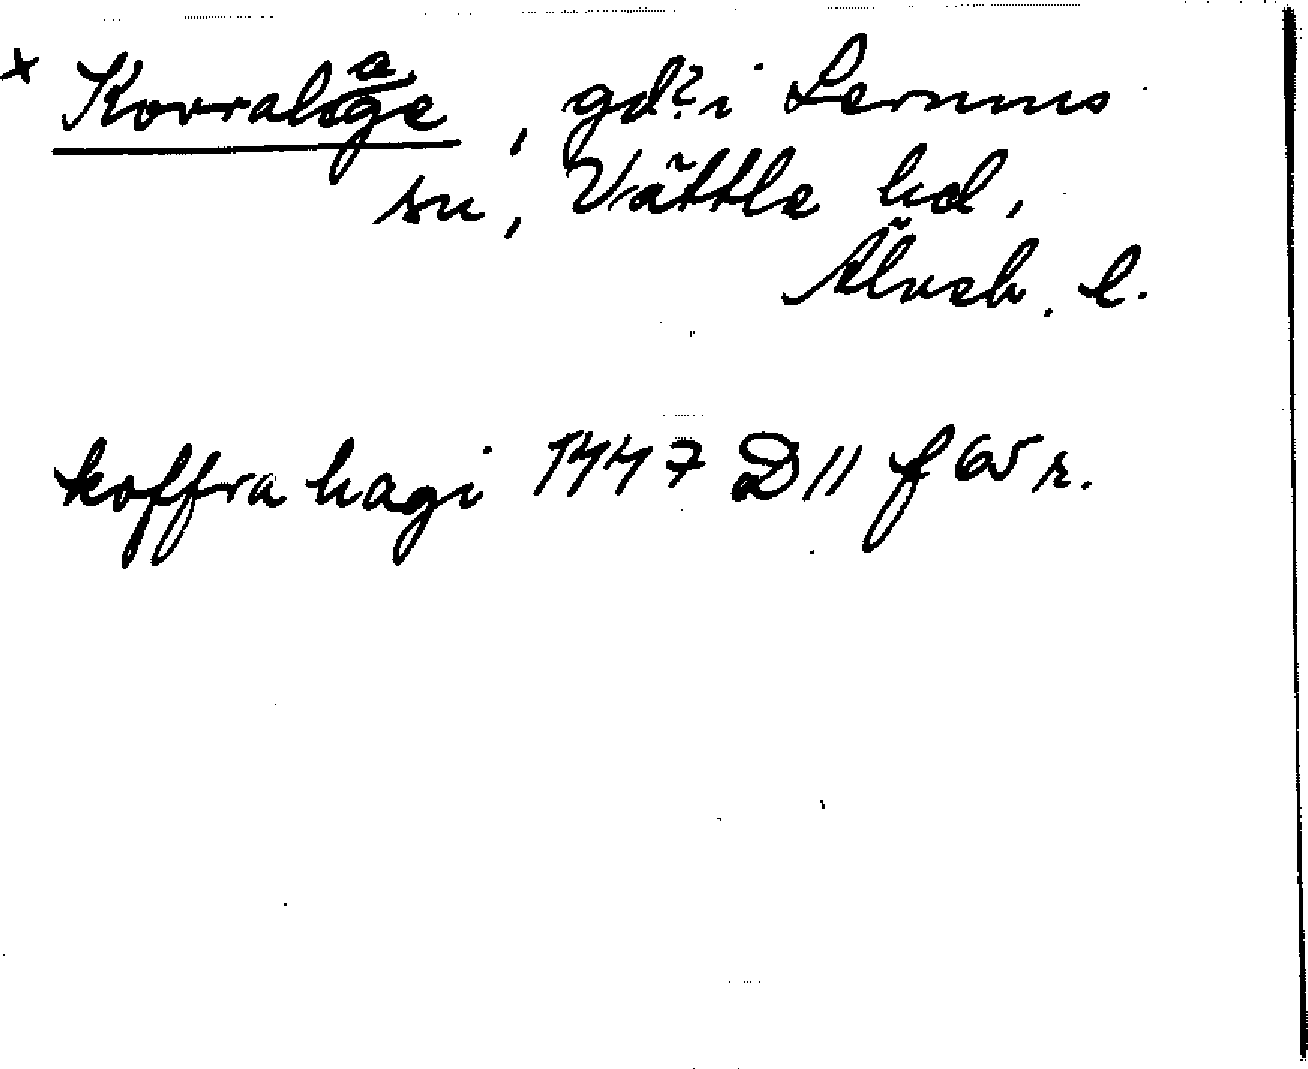 × Kovrahage, gd? i Lerums
sn, Vättle hd,
Älvsb. l.
koffra hagi 1447 D 11 f 65 r.